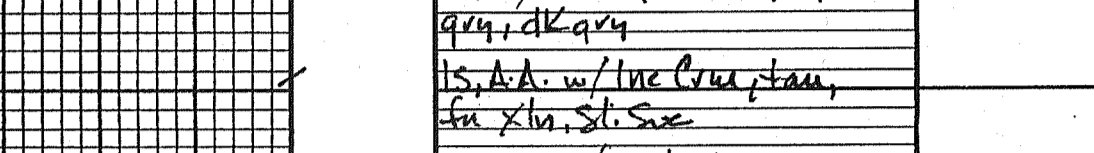 gry, dK gry
ls, A.A. w/ Inc Crm, tan,
fn xln, Sl. Suc